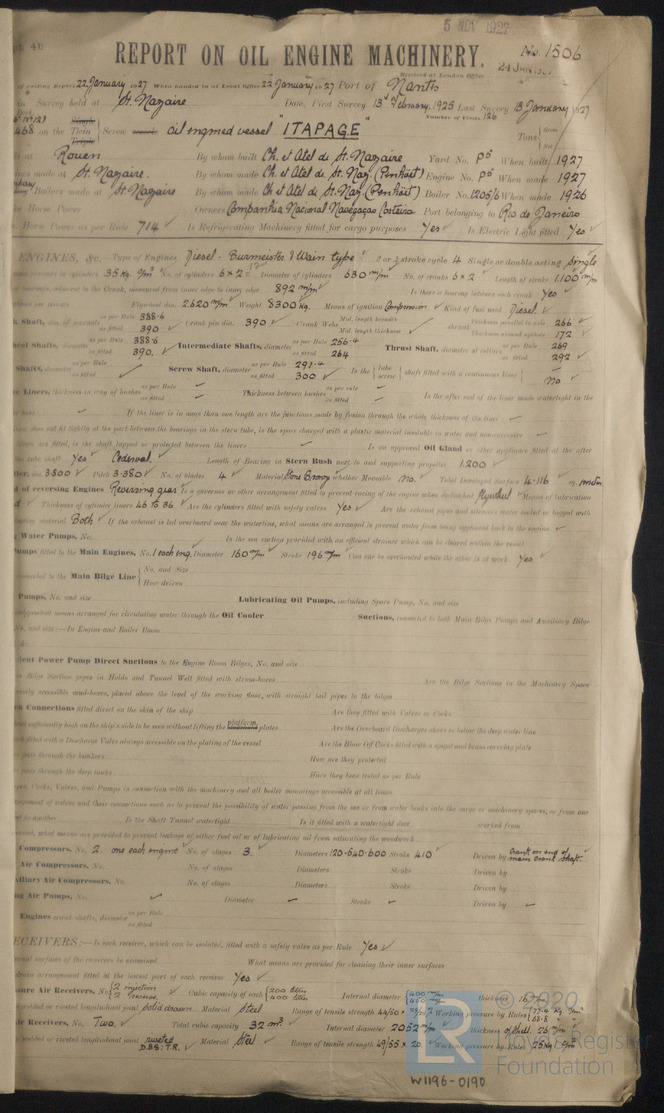 5 NOV 1927
pt. 4b
REPORT ON OIL ENGINE MACHINERY. No. 1506
Received at London Office 24 JAN 1927
of writing Report 22 January 1927 When handed in at Local Office 22 January 1927 Port of Nantes
in Survey held at St. Nazaire Date, First Survey 13th February, 1925 Last Survey 13 January 1927
Number of Visits 126
on the Single Twin Triple Screw vessel oil engined vessel "ITAPAGE" Tons Gross Net
at Rouen By whom built Ch. et Atel de St. Nazaire Yard No. P5 When built 1927
made at St. Nazaire By whom made Ch. et Atel de St. Naz (Penhoët) Engine No. P5 When made 1927
Boilers made at St. Nazaire By whom made Ch et Atel de St. Naz (Penhoët) Boiler No. 1205/6 When made 1926
Horse Power Owners Companhia Nacional Navegaçao Costeira Port belonging to Rio de Janeiro
Horse Power as per Rule 714 Is Refrigerating Machinery fitted for cargo purposes Yes Is Electric Light fitted Yes
ENGINES, &c. Type of Engines Diesel - Burmeister & Wain type 2 or 4 stroke cycle 4 Single or double acting Single
pressure in cylinders 35 Kg. No. of cylinders 6 x 2 Diameter of cylinders 630 m/m No. of cranks 6 x 2 Length of stroke 1.100 m/m
of bearings, adjacent to the Crank, measured from inner edge to inner edge 892 m/m Is there a bearing between each crank Yes
Flywheel dia. 2.620 m/m Weight 8300 Kg. Means of ignition Compression Kind of fuel used Diesel.
Shaft, dia. of journals as per Rule 388.6 as fitted 390 Crank pin dia. 390 Crank Webs Mid. length breadth Mid. length thickness shrunk Thickness parallel to axis 266 Thickness around eyehole 172
Shafts, diameter as per Rule 388.6 as fitted 390. Intermediate Shafts, diameter as per Rule 256.4 as fitted 264 Thrust Shaft, diameter at collars as per Rule 269 as fitted 292
Shafts, diameter as per Rule as fitted Screw Shaft, diameter as per Rule 291.4 as fitted 300 Is the tube screw shaft fitted with a continuous liner No
Liners, thickness in way of bushes as per Rule as fitted Thickness between bushes as per rule as fitted Is the after end of the liner made watertight in the
If the liner is in more than one length are the junctions made by fusion through the whole thickness of the liner
does not fit tightly at the part between the bearings in the stern tube, is the space charged with a plastic material insoluble in water and non-corrosive
liners are fitted, is the shaft lapped or protected between the liners Is an approved Oil Gland or other appliance fitted at the after
the tube shaft Yes Cederval. Length of Bearing in Stern Bush next to and supporting propeller 1.200
dia. 3.800 Pitch 3.380 No. of blades 4 Material Bronze whether Moveable No. Total Developed Surface 4.116 sq.
of reversing Engines Reversing gear Is a governor or other arrangement fitted to prevent racing of the engine when declutched Means of lubrication
Thickness of cylinder liners 46 to 36 Are the cylinders fitted with safety valves Yes Are the exhaust pipes and silencers water cooled or lagged with
material Both If the exhaust is led overboard near the waterline, what means are arranged to prevent water being syphoned back to the engine
Water Pumps, No. Is the sea suction provided with an efficient strainer which can be cleared within the vessel
Pumps fitted to the Main Engines, No. 1 each eng. Diameter 160 m/m Stroke 196 m/m Can one be overhauled while the other is at work Yes
connected to the Main Bilge Line No. and Size How driven
Pumps, No. and size Lubricating Oil Pumps, including Spare Pump, No. and size
independent means arranged for circulating water through the Oil Cooler Suctions, connected to both Main Bilge Pumps and Auxiliary Bilge
No. and size:—In Engine and Boiler Room
Power Pump Direct Suctions to the Engine Room Bilges, No. and size
Bilge Suction pipes in Holds and Tunnel Well fitted with strum-boxes Are the Bilge Suctions in the Machinery Space
easily accessible mud-boxes, placed above the level of the working floor, with straight tail pipes to the bilges
Connections fitted direct on the skin of the ship Are they fitted with Valves or Cocks
sufficiently high on the ship's side to be seen without lifting the platform plates Are the Overboard Discharges above or below the deep water line
fitted with a Discharge Valve always accessible on the plating of the vessel Are the Blow Off Cocks fitted with a spigot and brass covering plate
pass through the bunkers How are they protected
pass through the deep tanks Have they been tested as per Rule
Pipes, Cocks, Valves, and Pumps in connection with the machinery and all boiler mountings accessible at all times
arrangement of valves and their connections such as to prevent the possibility of water passing from the sea or from water tanks into the cargo or machinery spaces, or from one
to another Is the Shaft Tunnel watertight Is it fitted with a watertight door worked from
vessel, what means are provided to prevent leakage of either fuel oil or of lubricating oil from saturating the woodwork
Compressors, No. 2. one each engine No. of stages 3. Diameters 120-540-600 Stroke 410 Driven by Crank on end of main crank shaft.
Air Compressors, No. No. of stages Diameters Stroke Driven by
Auxiliary Air Compressors, No. No. of stages Diameters Stroke Driven by
Air Pumps, No. Diameter Stroke Driven by
Engines crank shafts, diameter as per Rule as fitted
RECEIVERS:—Is each receiver, which can be isolated, fitted with a safety valve as per Rule Yes
internal surfaces of the receivers be examined What means are provided for cleaning their inner surfaces
drain arrangement fitted at the lowest part of each receiver Yes
Air Receivers, No. 2 injection 2 reserve. Cubic capacity of each 200 400 Internal diameter thickness
welded or riveted longitudinal joint Solid drawn Material Steel Range of tensile strength 44/50 Working pressure by Rules
Air Receivers, No. Two. Total cubic capacity 32 m³ Internal diameter 2052 m/m thickness of shell 26 m/m
welded or riveted longitudinal joint riveted D.B.S: T.R. Material Steel Range of tensile strength 49/55 Working pressure by Rules
LR © 2020
Lloyd's Register
Foundation
W1196-0190